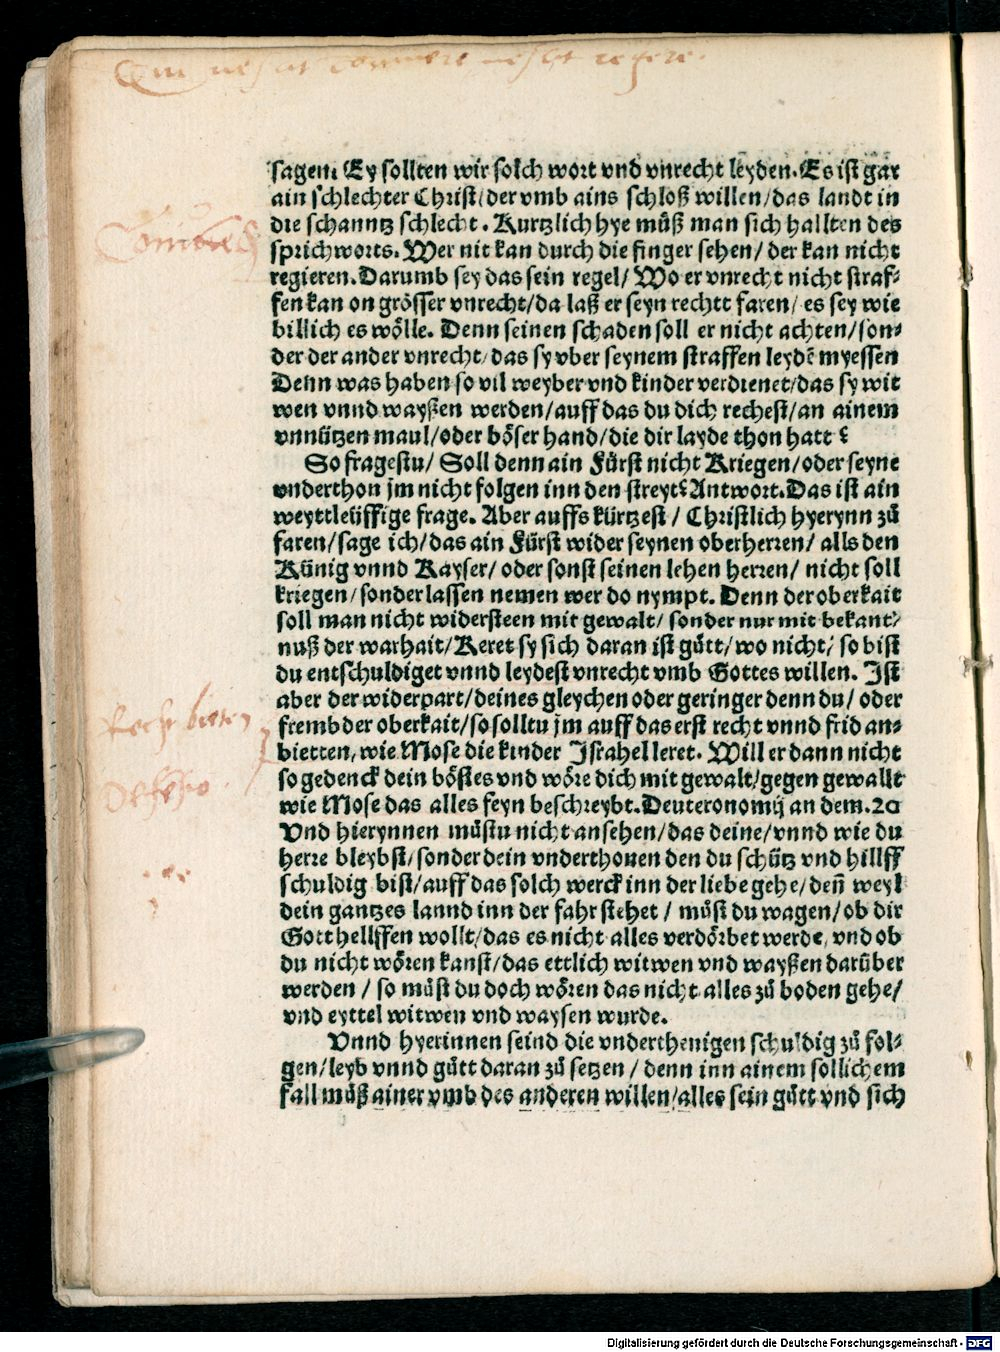 Qui nescit connivere nescit regere.
sagen: Ey sollten wir solch wort vnd vnrecht leyden. Es ist gar
ain schlechter Christ/ der vmb ains schloß willen/ das landt in
die schanntz schlecht. Kurtzlich hye můß man sich hallten des
sprichworts. Wer nit kan durch die finger sehen/ der kan nicht
regieren. Darumb sey das sein regel/ Wo er vnrecht nicht straf⸗
fen kan on grösser vnrecht/ da laß er seyn rechtt faren/ es sey wie
billich es wölle. Denn seinen schaden soll er nicht achten/ son⸗
der der ander vnrecht/ das sy vber seynem straffen leydē myessen
Denn was haben so vil weyber vnd kinder verdienet/ das sy wit
wen vnnd wayßen werden/ auff das du dich rechest/ an ainem
vnnützen maul/ oder böser hand/ die dir layde thon hatt?
So fragestu/ Soll denn ain Fürst nicht Kriegen/ oder seyne
vnderthon jm nicht folgen inn den streyt? Antwort. Das ist ain
weyttleüffige frage. Aber auffs kürtzest/ Christlich hyerynn zů
faren/ sage ich/ das ain Fürst wider seynen oberherren/ alls den
Künig vnnd Kayser/ oder sonst seinen lehen herren/ nicht soll
kriegen/ sonder lassen nemen wer do nympt. Denn der oberkait
soll man nicht widersteen mit gewalt/ sonder nur mit bekant⸗
nuß der warhait/ Keret sy sich daran ist gůtt/ wo nicht/ so bist
du entschuldiget vnnd leydest vnrecht vmb Gottes willen. Ist
aber der widerpart/ deines gleychen oder geringer denn du/ oder
frembder oberkait/ so solltu jm auff das erst recht vnnd frid an⸗
bietten, wie Mose die kinder Israhel leret. Will er dann nicht
so gedenck dein böstes vnd wöre dich mit gewalt/ gegen gewallt
wie Mose das alles feyn beschreybt. Deuteronomij an dem. 20
Vnd hierynnen můstu nicht ansehen/ das deine/ vnnd wie du
herre bleybst/ sonder dein vnderthonen den du schütz vnd hillff
schuldig bist/ auff das solch werck inn der liebe gehe/ deñ weyl
dein gantzes lannd inn der fahr stehet/ můst du wagen/ ob dir
Gott hellffen wollt/ das es nicht alles verdörbet werde, vnd ob
du nicht wören kanst/ das ettlich witwen vnd wayßen darüber
werden/ so můst du doch wören das nicht alles zů boden gehe/
vnd eyttel witwen vnd waysen wurde.
Vnnd hyerinnen seind die vnderthenigen schuldig zů fol⸗
gen/ leyb vnnd gůtt daran zů setzen/ denn inn ainem sollichem
fall můß ainer vmb des anderen willen/ alles sein gůtt vnd sich
Recht bieten
Defensio.
Digitalisierung gefördert durch die Deutsche Forschungsgemeinschaft - DFG